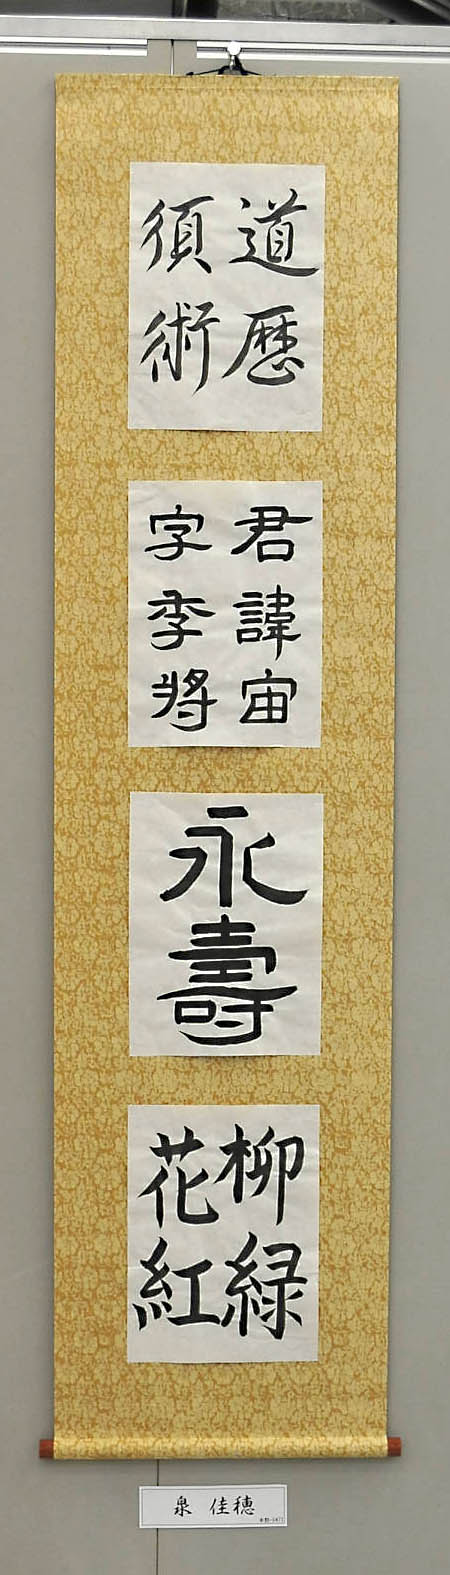 道歴
須術
君諱宙
字季将
永壽
柳緑
花紅
泉 佳穂